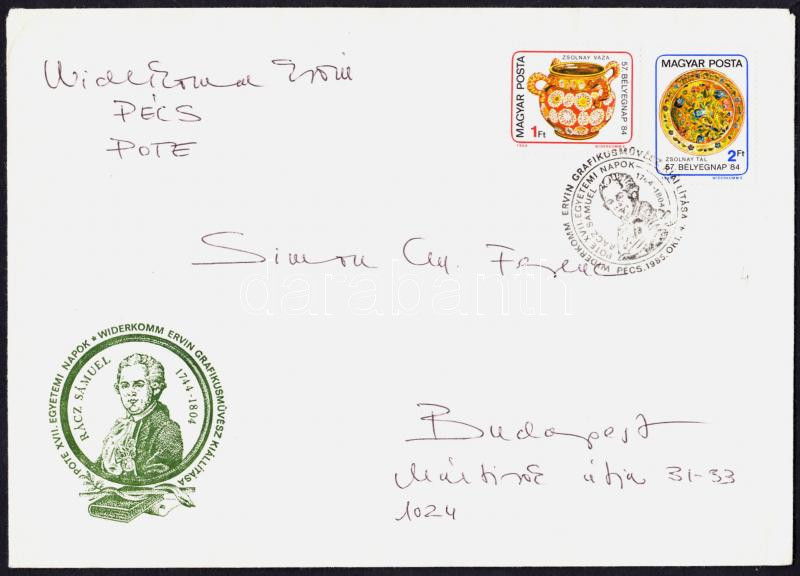 Widerkomm Ervin
PÉCS
POTE
MAGYAR POSTA
ZSOLNAY VÁZA
57. BÉLYEGNAP 84
1Ft
1984
WIDERKOMM E.
MAGYAR POSTA
ZSOLNAY TÁL
2Ft
57. BÉLYEGNAP 84
WIDERKOMM E.
WIDERKOMM ERVIN GRAFIKUSMŰVÉSZ KIÁLLÍTÁSA
POTE XVII. EGYETEMI NAPOK
RÁCZ SÁMUEL 1744-1804
PÉCS. 1985. OKT. 4.
Simon Gy. Ferenc
darabanth
POTE XVII. EGYETEMI NAPOK * WIDERKOMM ERVIN GRAFIKUSMŰVÉSZ KIÁLLÍTÁSA
RÁCZ SÁMUEL 1744-1804
Budapest
Mártírok útja 31-33
1024